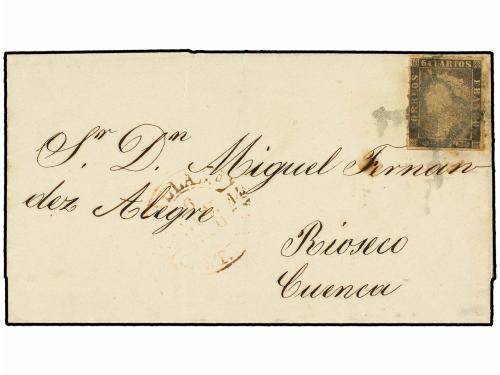 6 CUARTOS
CORREOS
FRANCO
Sr. Dn. Miguel Fernan
dez Alegre
Rioseco
Cuenca